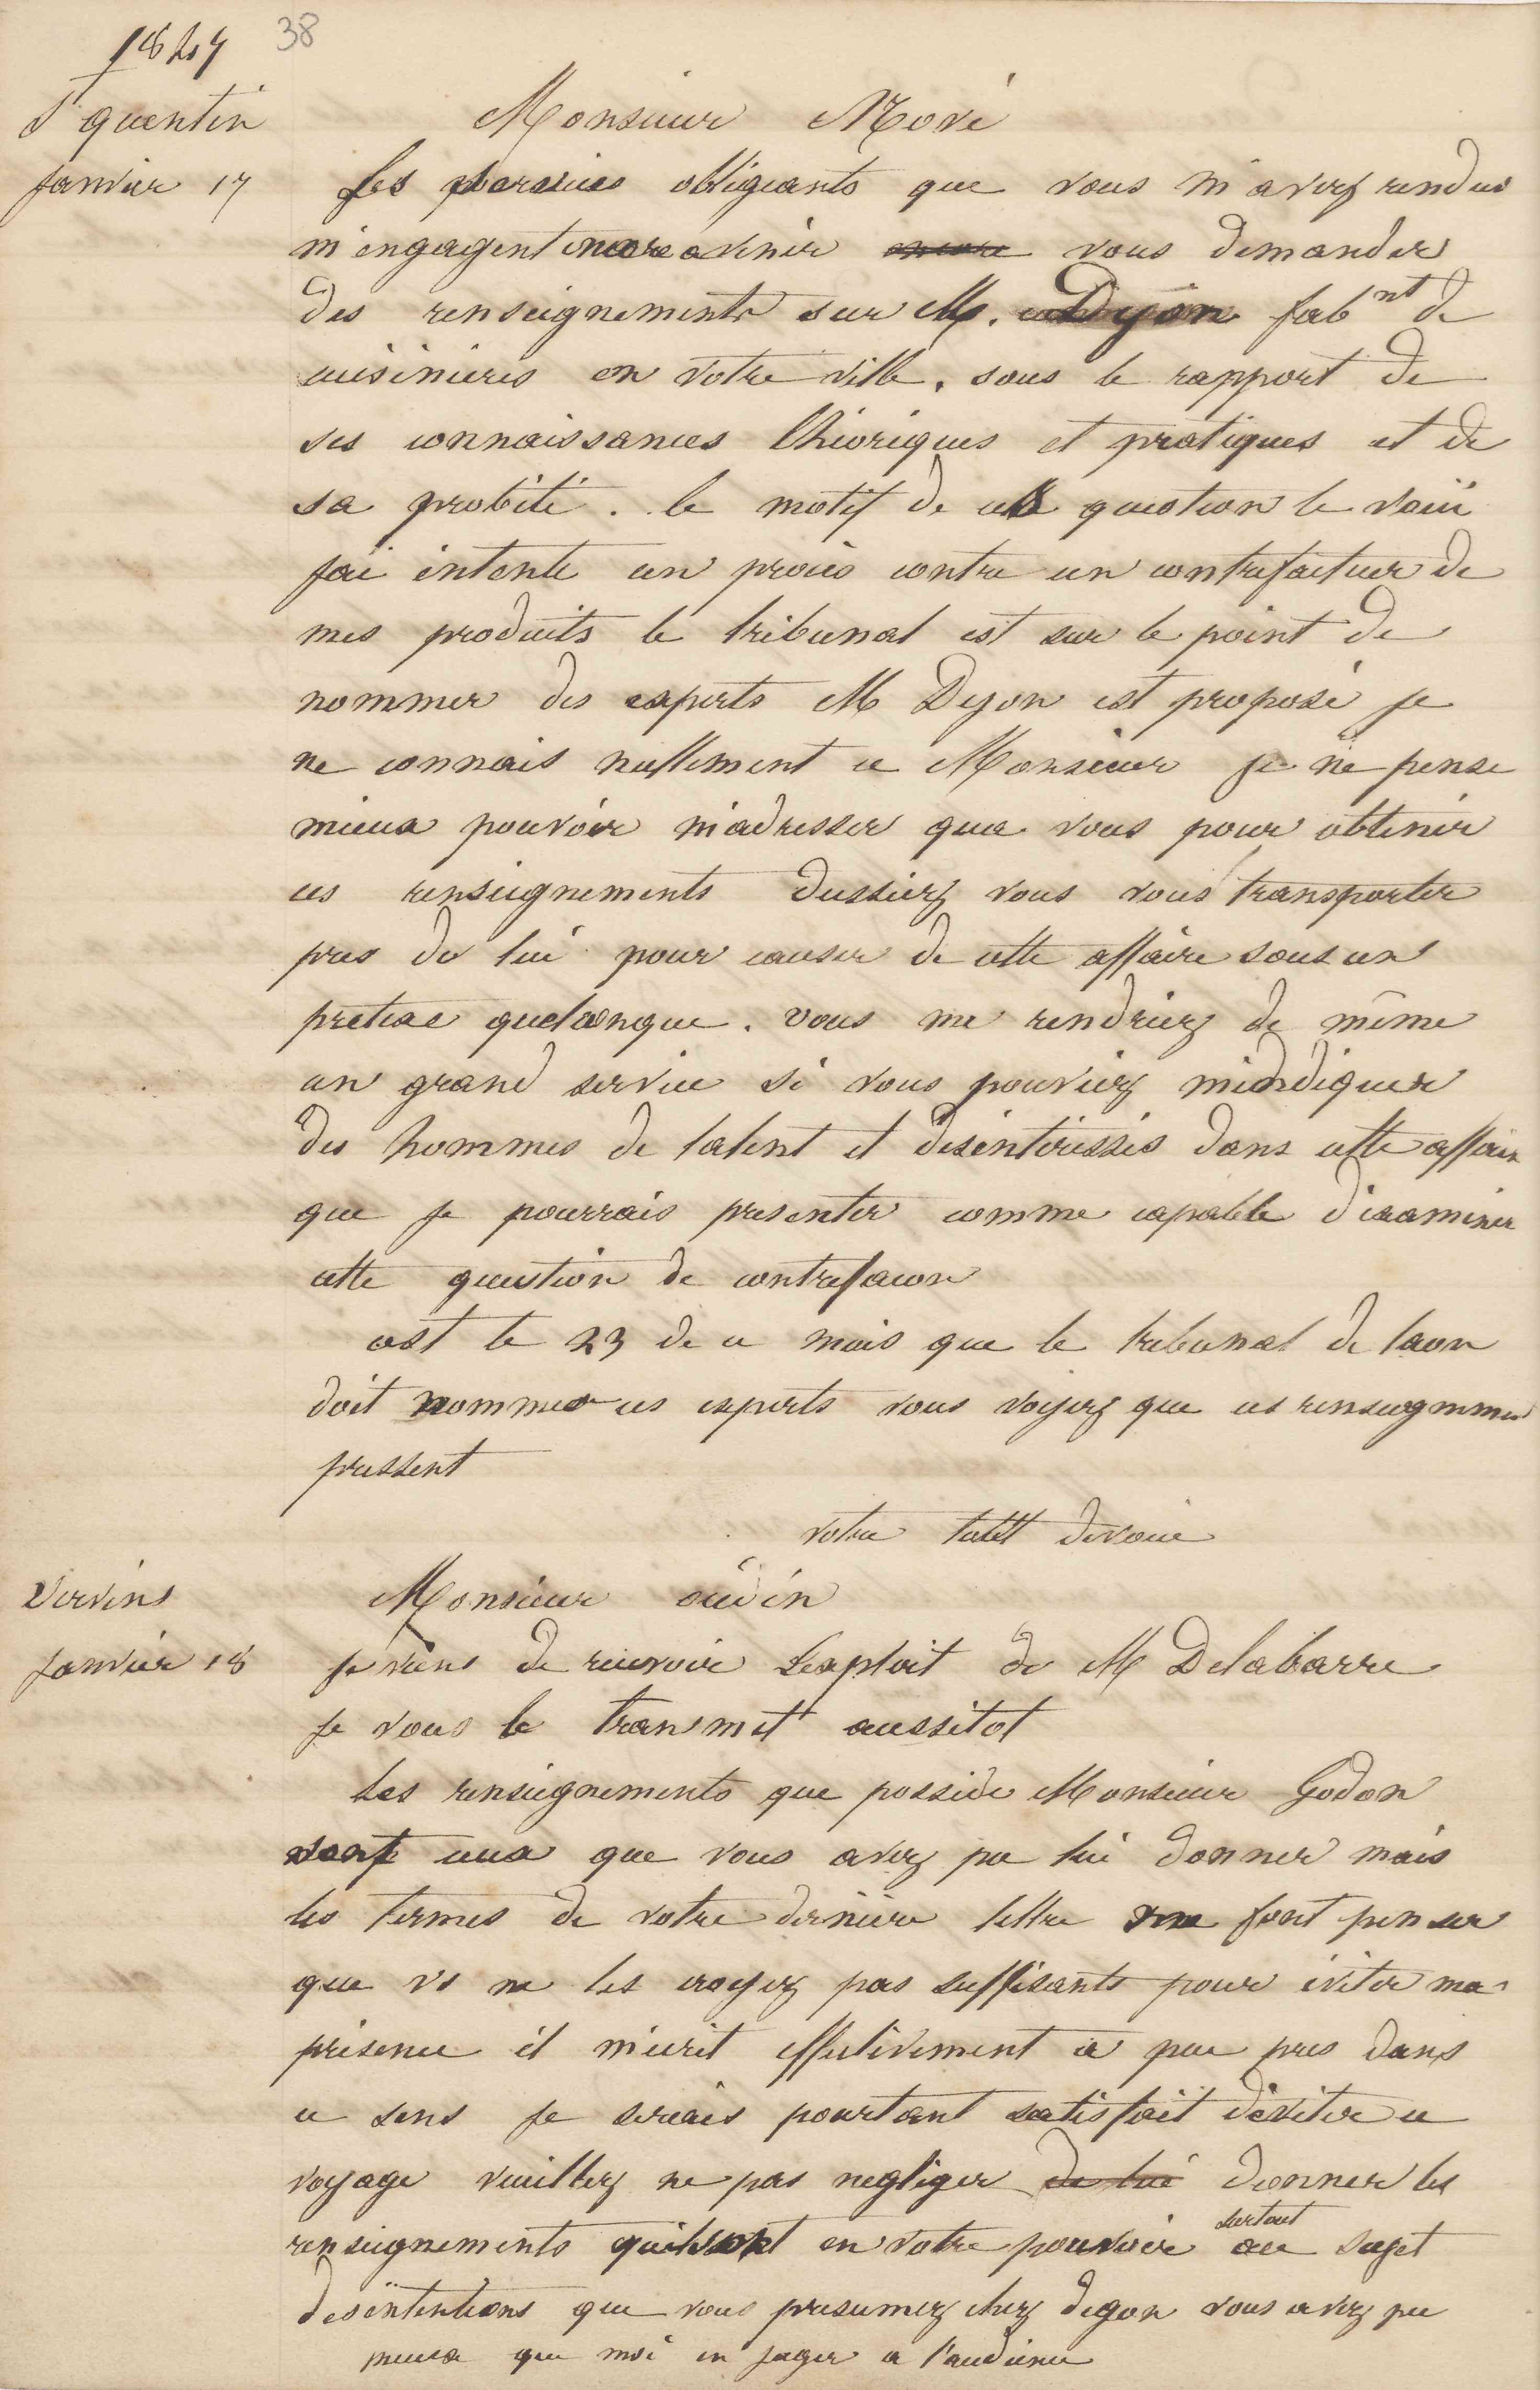 1847 38
St quentin Monsieur Moré
Janvier 17 Les services obligeants que vous m'avez rendus
m'engagent encore a venir encore vous demander
des renseignements sur M. Dejon fabnt de
cuisinieres en votre ville. sous le rapport de
ses connaissances théoriques et pratiques et de
sa probité. le motif de cette question le voici
jai intenté un procès contre un contrefacteur de
mes produits le tribunal est sur le point de
nommer des experts M Dejon est proposé je
ne connais nullement ce Monsieur je ne pense
mieux pouvoir m'adresser qua vous pour obtenir
ces renseignements dussiez vous vous transporter
pres de lui pour causer de cette affaire sous un
pretexe quelconque. vous me rendriez de même
un grand service si vous pouviez m'indiquer
des hommes de talent et desintéressés dans cette affaire
que je pourrais presenter comme capable d'examiner
cette question de contrefacon
cest le 23 de ce mois que le tribunal de laon
doit nommer ces experts vous voyez que ces renseignemen
pressent
votre tout devoué
Vervins Monsieur oudin
Janvier 18 je viens de recevoir Lexploit de M Delabarre
je vous le transmet aussitot
Les renseignements que posside Monsieur Godon
sont ceux que vous avez pu lui donner mais
les termes de votre dernière lettre me font penser
que vs ne les croyez pas suffisants pour éviter ma
présence il m'écrit effectivement a peu pres dans
ce sens je serais pourtant satisfait déviter ce
voyage veuillez ne pas negliger de lui donner les
renseignements quils sont en votre pouvoir surtout au sujet
des intentions que vous presumez chez dejon vous avez pu
mieux que moi en juger a l'audience